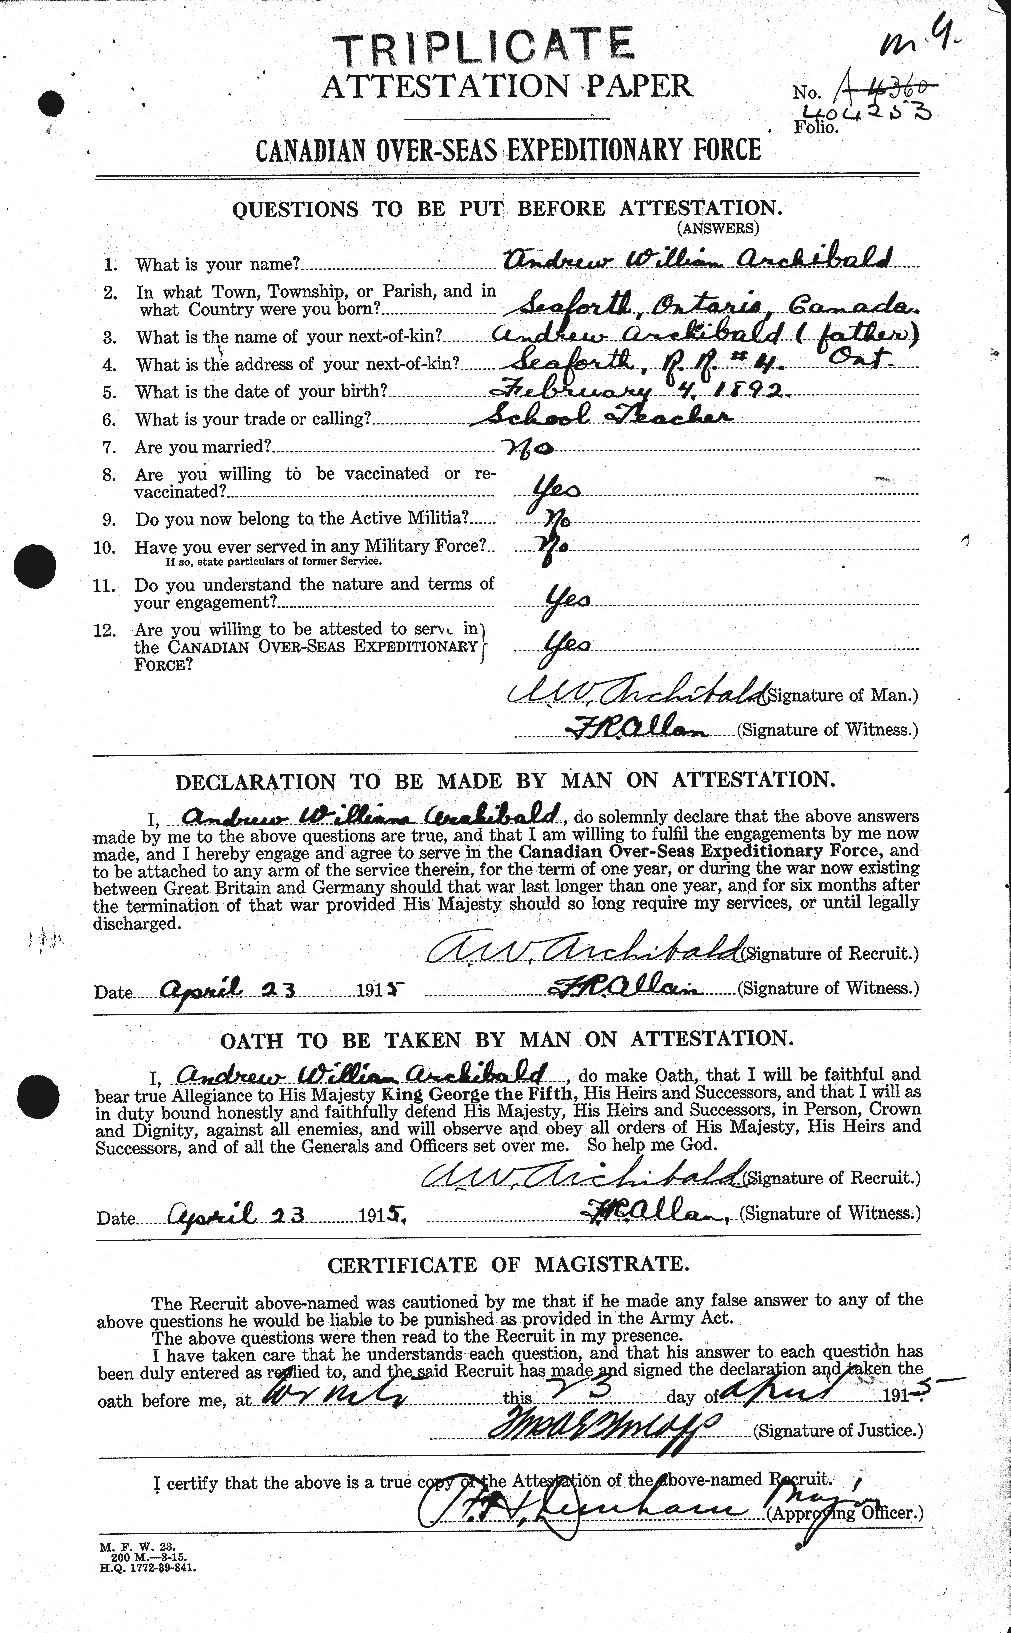 m 9.
TRIPLICATE
ATTESTATION PAPER
No. A 4360
404253
Folio.
CANADIAN OVER-SEAS EXPEDITIONARY FORCE
QUESTIONS TO BE PUT BEFORE ATTESTATION.
(ANSWERS)
1. What is your name? Andrew William Archibald
2. In what Town, Township, or Parish, and in
what Country were you born? Seaforth, Ontario, Canada.
3. What is the name of your next-of-kin? Andrew Archibald (father)
4. What is the address of your next-of-kin? Seaforth, R. R. #4. Ont.
5. What is the date of your birth? February 4, 1892.
6. What is your trade or calling? School Teacher
7. Are you married? No
8. Are you willing to be vaccinated or re-
vaccinated? Yes
9. Do you now belong to the Active Militia? No
10. Have you ever served in any Military Force? No
If so, state particulars of former Service.
11. Do you understand the nature and terms of
your engagement? Yes
12. Are you willing to be attested to serve in
the CANADIAN OVER-SEAS EXPEDITIONARY Yes
FORCE?
A.W. Archibald (Signature of Man.)
F.R. Allan (Signature of Witness.)
DECLARATION TO BE MADE BY MAN ON ATTESTATION.
I, Andrew William Archibald, do solemnly declare that the above answers
made by me to the above questions are true, and that I am willing to fulfil the engagements by me now
made, and I hereby engage and agree to serve in the Canadian Over-Seas Expeditionary Force, and
to be attached to any arm of the service therein, for the term of one year, or during the war now existing
between Great Britain and Germany should that war last longer than one year, and for six months after
the termination of that war provided His Majesty should so long require my services, or until legally
discharged.
A.W. Archibald (Signature of Recruit.)
Date April 23 1915 F.R. Allan (Signature of Witness.)
OATH TO BE TAKEN BY MAN ON ATTESTATION.
I, Andrew William Archibald, do make Oath, that I will be faithful and
bear true Allegiance to His Majesty King George the Fifth, His Heirs and Successors, and that I will as
in duty bound honestly and faithfully defend His Majesty, His Heirs and Successors, in Person, Crown
and Dignity, against all enemies, and will observe and obey all orders of His Majesty, His Heirs and
Successors, and of all the Generals and Officers set over me. So help me God.
A.W. Archibald (Signature of Recruit.)
Date April 23 1915. F.R. Allan, (Signature of Witness.)
CERTIFICATE OF MAGISTRATE.
The Recruit above-named was cautioned by me that if he made any false answer to any of the
above questions he would be liable to be punished as provided in the Army Act.
The above questions were then read to the Recruit in my presence.
I have taken care that he understands each question, and that his answer to each question has
been duly entered as replied to, and the said Recruit has made and signed the declaration and taken the
oath before me, at this 23 day of April 1915
(Signature of Justice.)
I certify that the above is a true copy of the Attestation of the above-named Recruit.
Denham Major (Approving Officer.)
M. F. W. 23.
200 M.—3-15.
H.Q. 1772-39-841.